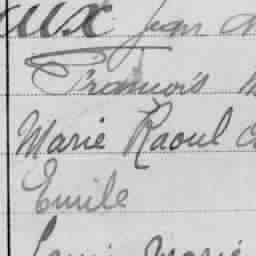 aux Jean
François
Marie Raoul
Emile
Louis Marie